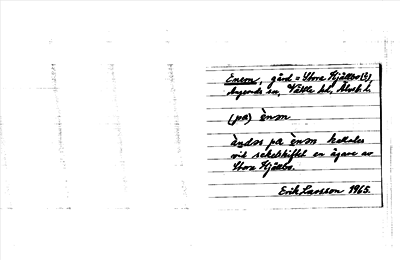 Enson, gård = Stora Kjällbo (?),
sn, Väkle hd, Älvsb l.
(på) ènsn
àndos pa ènsn kallades
vid sekelskiftet en ägare av
Stora Kjällbo.
Erik Larsson 1965.